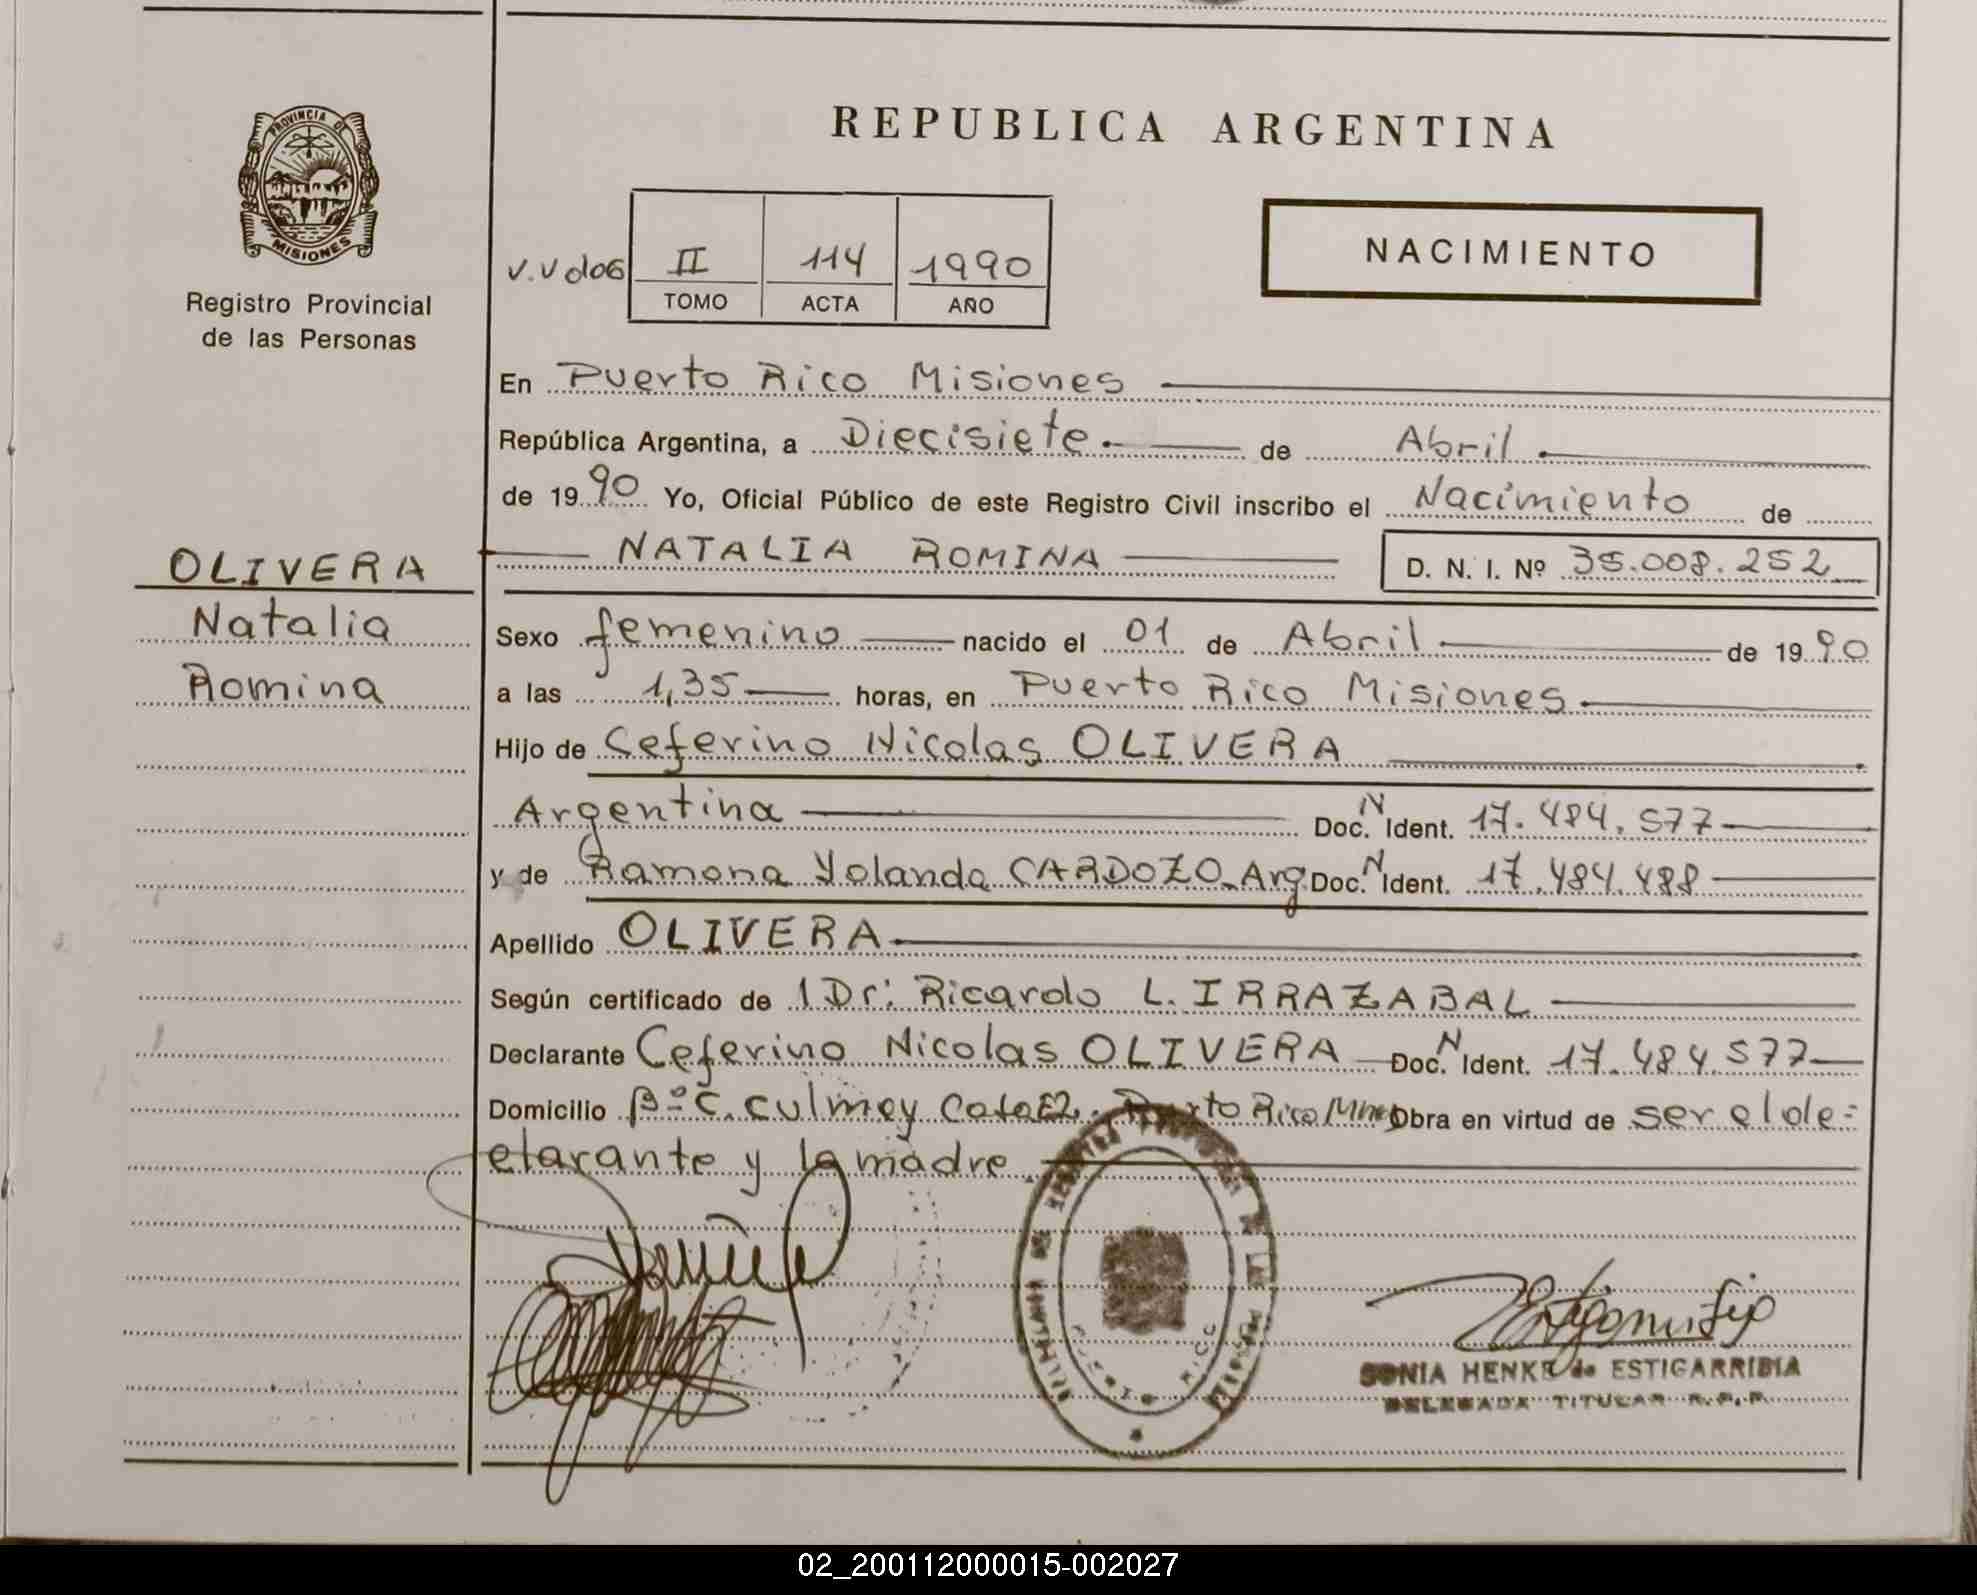 REPUBLICA ARGENTINA
PROVINCIA DE
MISIONES
Registro Provincial
de las Personas
V.V dos II 114 1990
TOMO ACTA AÑO
NACIMIENTO
En Puerto Rico Misiones
República Argentina, a Diecisiete de Abril
de 1990 Yo, Oficial Público de este Registro Civil inscribo el Nacimiento de
OLIVERA
Natalia
Romina
NATALIA ROMINA D. N. I. Nº 35.008.252
Sexo femenino nacido el 01 de Abril de 1990
a las 1,35 horas, en Puerto Rico Misiones
Hijo de Ceferino Nicolas OLIVERA
Argentina Doc. N Ident. 17.484.577
y de Ramona Yolanda CARDOZO. Arg Doc. N Ident. 17.484.488
Apellido OLIVERA
Según certificado de 1 Dr: Ricardo L. IRRAZABAL
Declarante Ceferino Nicolas OLIVERA Doc. N Ident. 17.484.577
Domicilio Bº C. Culmey Casa 52. Puerto Rico Mnes Obra en virtud de ser el de=
clarante y la madre
PUERTO RICO
SONIA HENKE de ESTIGARRIBIA
DELEGADA TITULAR R.P.P.
02_200112000015-002027